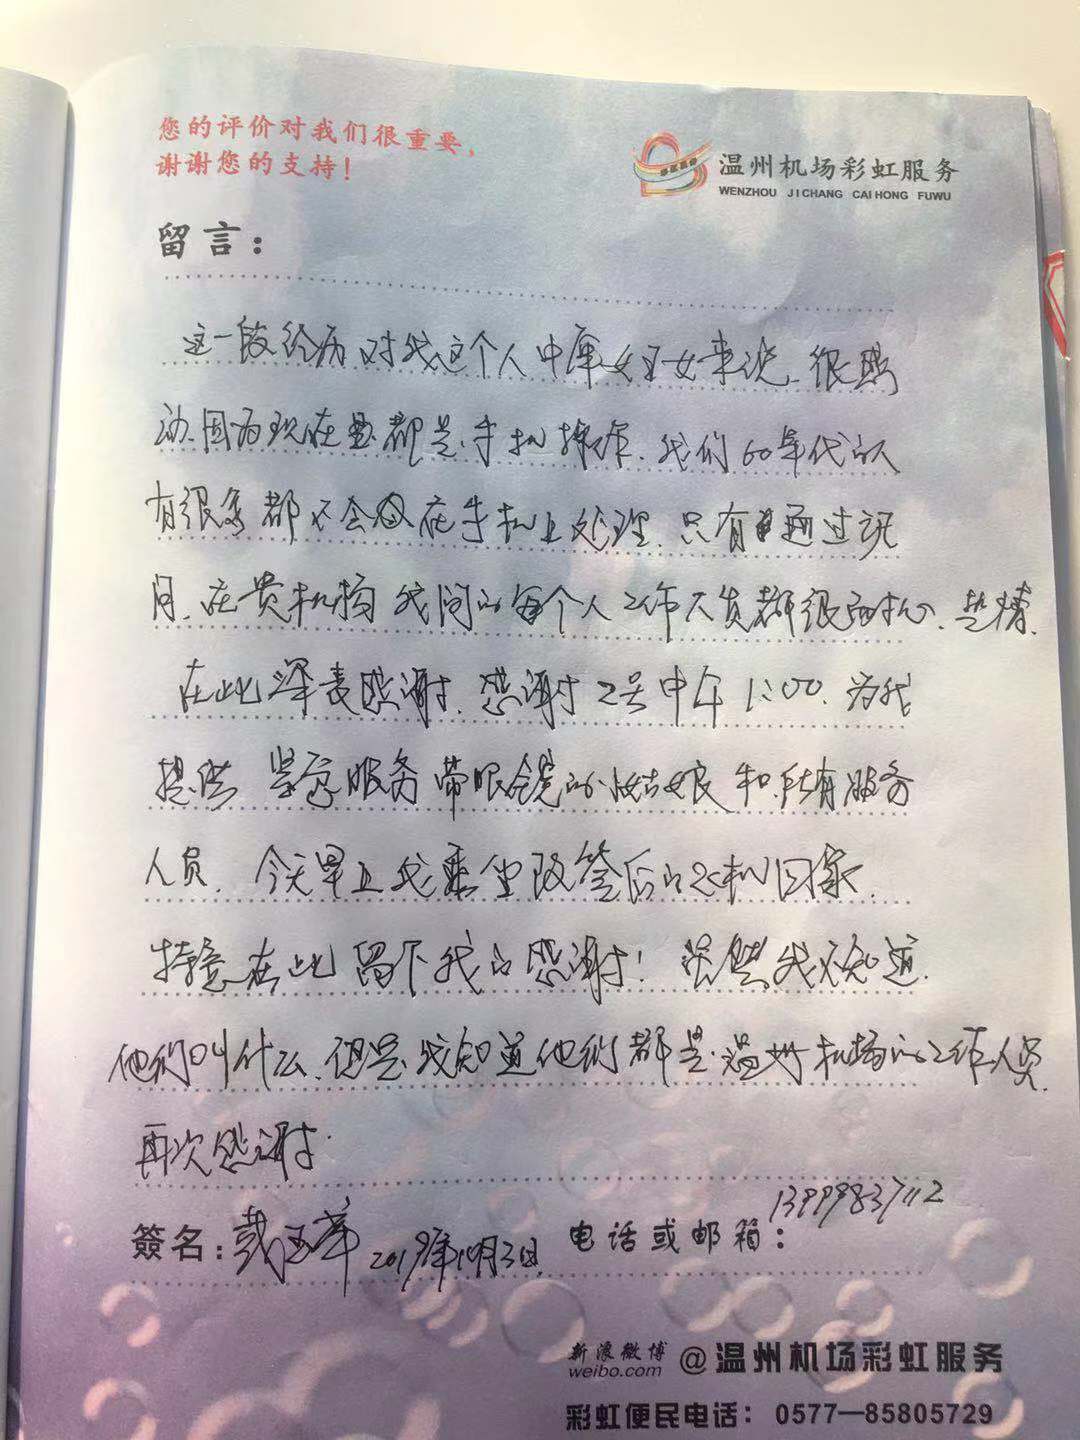 您的评价对我们很重要，
谢谢您的支持！
温州机场彩虹服务
WENZHOU JICHANG CAIHONG FUWU
留言：
这一段经历对我这个人中年妇女来说，很感
动，因为现在都是手机操作，我们60年代的人
有很多都不会在手机上处理，只有通过询
问，在贵机场我问的每个人工作人员都很耐心、热情，
在此深表感谢，感谢2号中午1:00，为我
提供服务带眼镜的小姑娘和所有服务
人员，今天早上我乘坐改签后的飞机回家，
特意在此留下我的感谢！虽然我不知道
他们叫什么，但是我知道他们都是温州机场的工作人员，
再次感谢.
签名：戴玉萍 2019年10月3日
电话或邮箱：13999837112
新浪微博
weibo.com
@温州机场彩虹服务
彩虹便民电话：0577—85805729